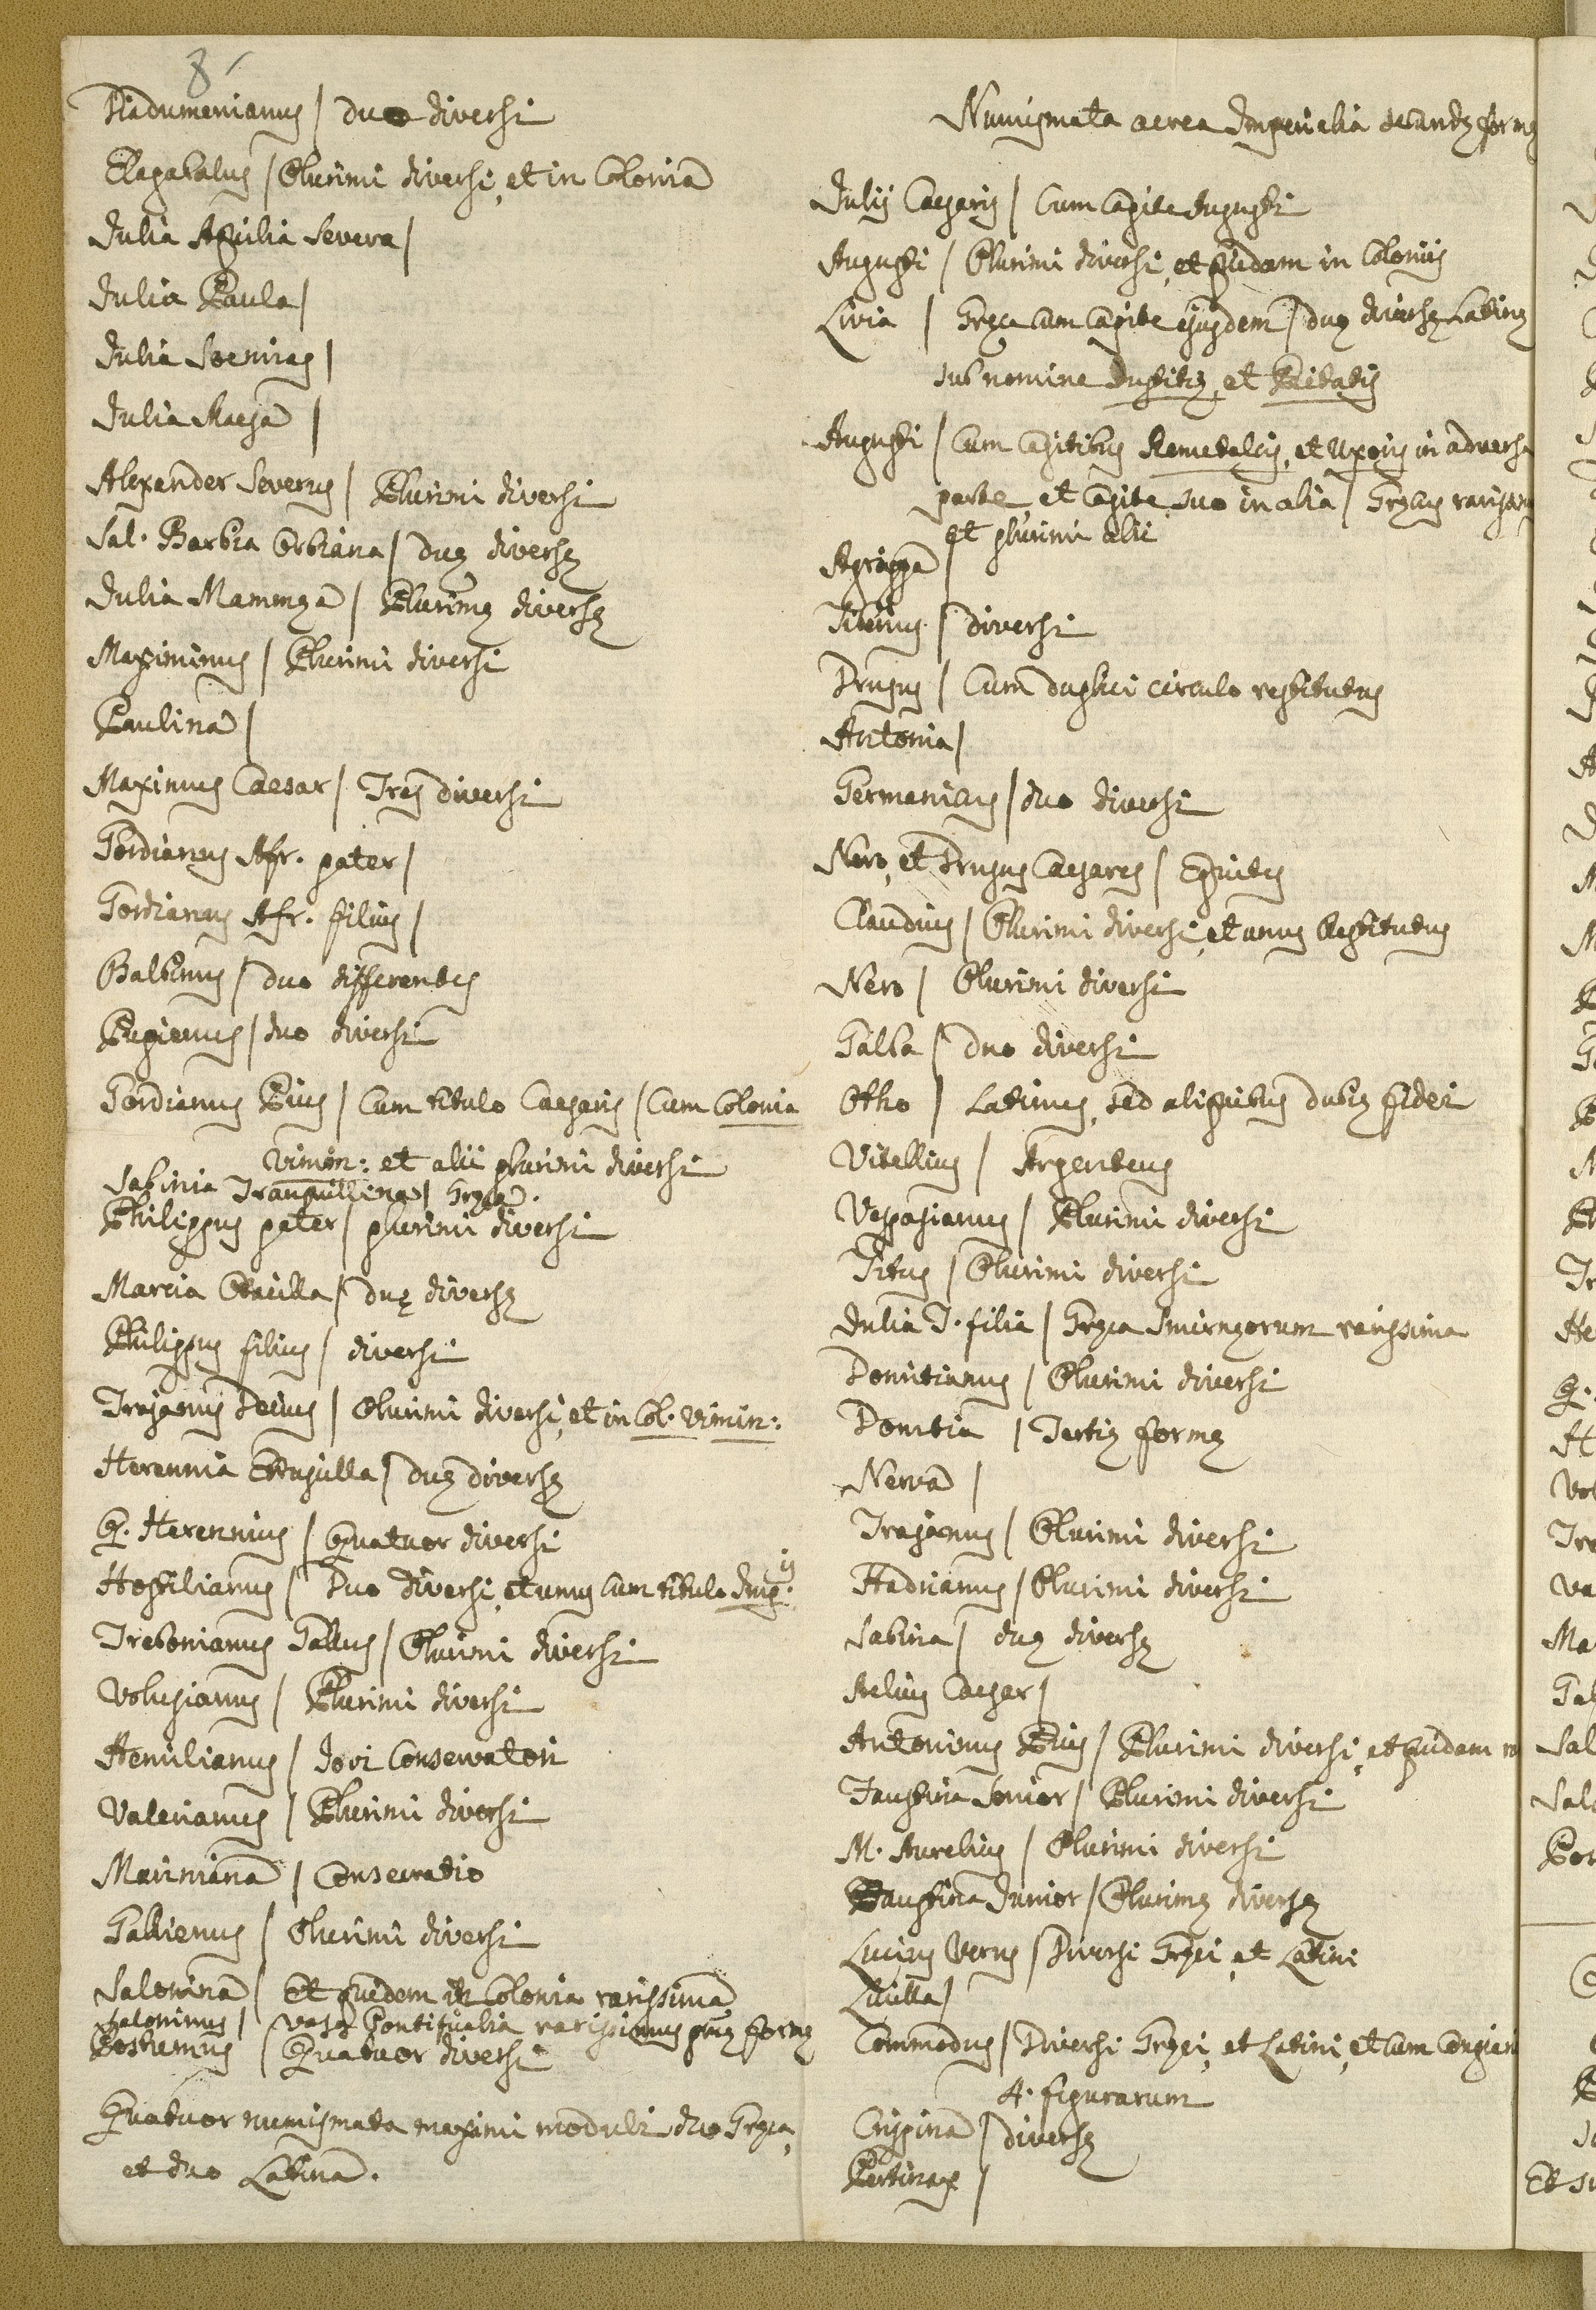 8
Diadumenianus / duo diversi
Elagabalus / Plurimi diversi, et in Colonia
Julia Aquilia Severa /
Julia Paula /
Julia Soemias /
Julia Maesa /
Alexander Severus / Plurimi diversi
Sal. Barbia Orbiana / duę diversę
Julia Mammęa / Plurimę diversę
Maximinus / Plurimi diversi
Paulina /
Maximus Caesar / Tres diversi
Gordianus Afr. pater /
Gordianus Afr. filius /
Balbinus / duo differentes
Pupienus / duo diversi
Gordianus Pius / Cum titulo Caesaris / Cum Colonia
Vimin: et alii plurimi diversi
Sabinia Tranquillina / Gręca.
Philippus pater / plurimi diversi
Marcia Otacilla / duę diversę
Philippus filius / diversi
Trajanus Decius / Plurimi diversi, et in Col. Vimin:
Herennia Etrusilla / duę diversę
Q. Herennius / Quatuor diversi
Hostilianus / Duo diversi, et unus cum titulo Imp.is
Trebonianus Gallus / Plurimi diversi
Volusianus / Plurimi diversi
Aemilianus / Jovi Conservatori
Valerianus / Plurimi diversi
Mariniana / Consecratio
Gallienus / Plurimi diversi
Salonina / Et quidem in Colonia rarissima
Saloninus / vasa Pontificalia rarissimus pmę formę
Postumus / Quatuor diversi
Quatuor numismata maximi moduli duo Gręca,
et duo Latina.
Numismata aerea Imperialia secundę formę
Julii Caesaris / Cum Capite Augusti
Augusti / Plurimi diversi, et quidam in Coloniis
Livia / Gręca cum Capite ejusdem / duę diversę Latinę
sub nomine Justitię, et Pietatis
Augusti / Cum Capitibus Remetalcis, et Uxoris in adversa
parte, et Capite suo in alia / Gręcus rarissimus
et plurimi alii
Agrippa /
Tiberius / diversi
Drusus / Cum duplici circulo restitutus
Antonia /
Germanicus / duo diversi
Nero, et Drusus Caesares / Equites
Claudius / Plurimi diversi, et unus Restitutus
Nero / Plurimi diversi
Galba / duo diversi
Otho / Latinus, sed aliquibus dubię fidei
Vitellius / Argenteus
Vespasianus / Plurimi diversi
Titus / Plurimi diversi
Julia T. filia / Gręca Smirnęorum rarissima
Domitianus / Plurimi diversi
Domitia / Tertię formę
Nerva /
Trajanus / Plurimi diversi
Hadrianus / Plurimi diversi
Sabina / duę diversę
Aelius Caesar /
Antoninus Pius / Plurimi diversi, et quidam
Faustina Senior / Plurimi diversi
M. Aurelius / Plurimi diversi
Faustina Junior / Plurimę diversę
Lucius Verus / Diversi Gręci, et Latini
Lucilla /
Commodus / Diversi Gręci, et Latini, et cum Congiar
4. figurarum
Crispina / diversę
Pertinax /